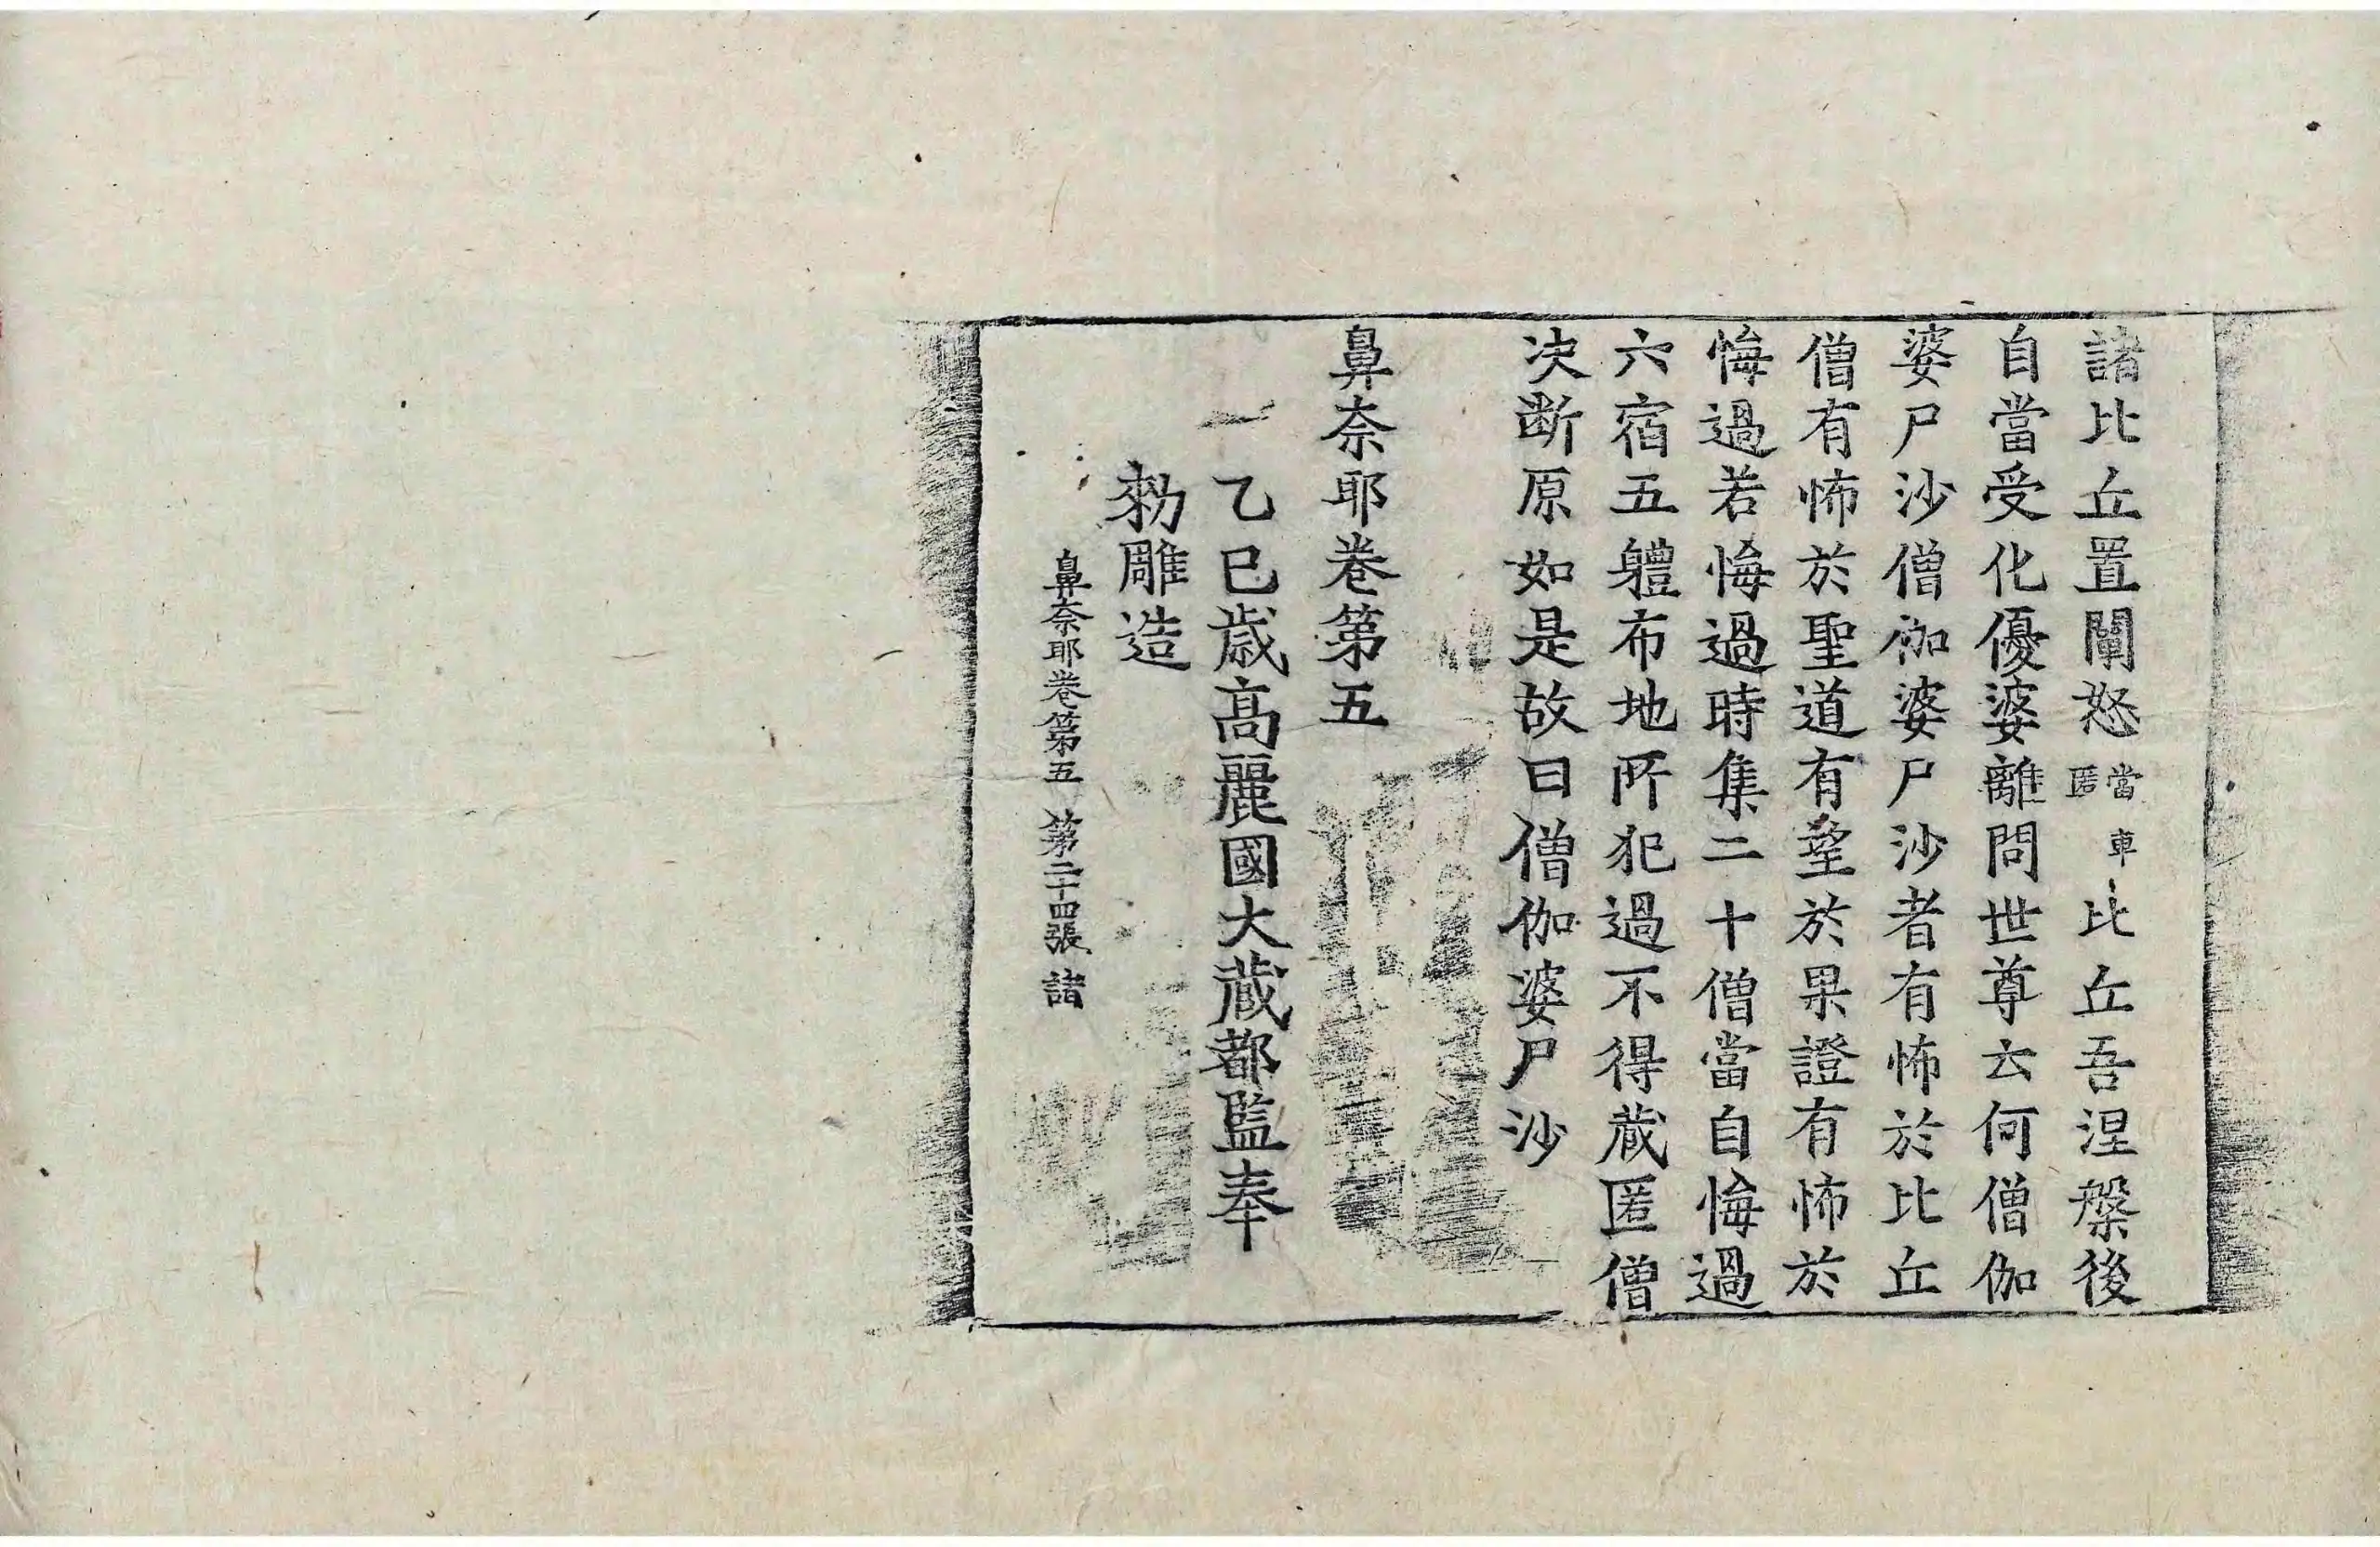 諸比丘置闡怒當車匿比丘吾涅槃後
自當受化優婆離問世尊云何僧伽
婆尸沙僧伽婆尸沙者有怖於比丘
僧有怖於聖道有望於果證有怖於
悔過若悔過時集二十僧當自悔過
六宿五軆布地所犯過不得蔵匿僧
决断原如是故曰僧伽婆尸沙
鼻奈耶卷第五
乙巳歲高麗國大蔵都監奉
勑雕造
鼻奈耶卷第五 第二十四張 諸